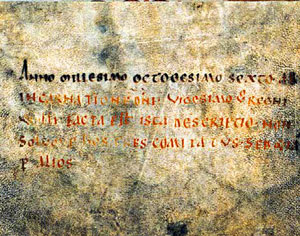 ANNO MILLESIMO OCTOGESIMO SEXTO AB
INCARNATIONE DNI VIGESIMO REGNI
FACTA EST ISTA DESCRIPTIO NON
SOLUM HOS TRES COMITATUS SED
ALIOS